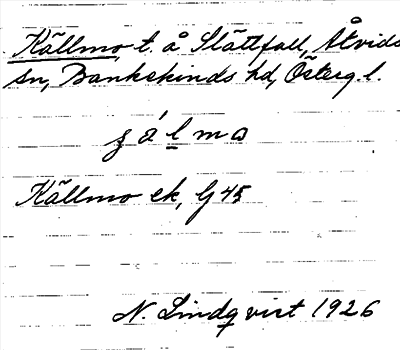 Källmo, t. å Slättfall, Åtvids
sn, Bankekinds hd, Österg. l.
ʒ á l m ɷ
Källmo ek, G 45
N. Lindqvist 1926